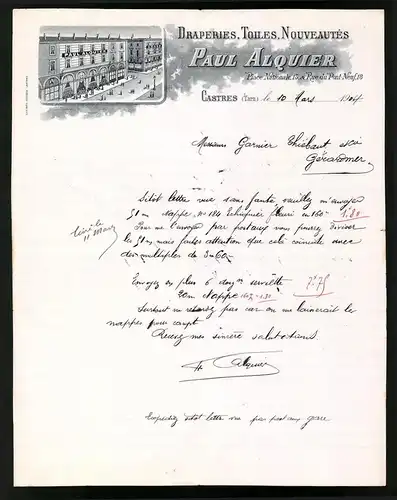 DRAPERIES, TOILES, NOUVEAUTÉS
PAUL ALQUIER
PAUL ALQUIER
Place Nationale, 13 & Rue du Pont Neuf, 18
CASTRES (TARN) le 10 Mars 1904
Messieurs Garnier Thiébaut
Gérardmer
Sitôt lettre vue sans faute, veuillez m'envoyer
51 m nappe No 184 fleuri en 160 1.80
Pour me l'envoyer par postaux vous pourrez diviser
les 51 m, mais faites attention que cela coincide avec
des multiples de
11 Mars
Envoyez en plus 6 douz serviette 7.75
20 m nappe 1.80
Surtout ne pas car on me laisserait les
nappes pour compte
Recevez mes sincères salutations
Alquier
Expédiez sitôt lettre vue par postaux gare